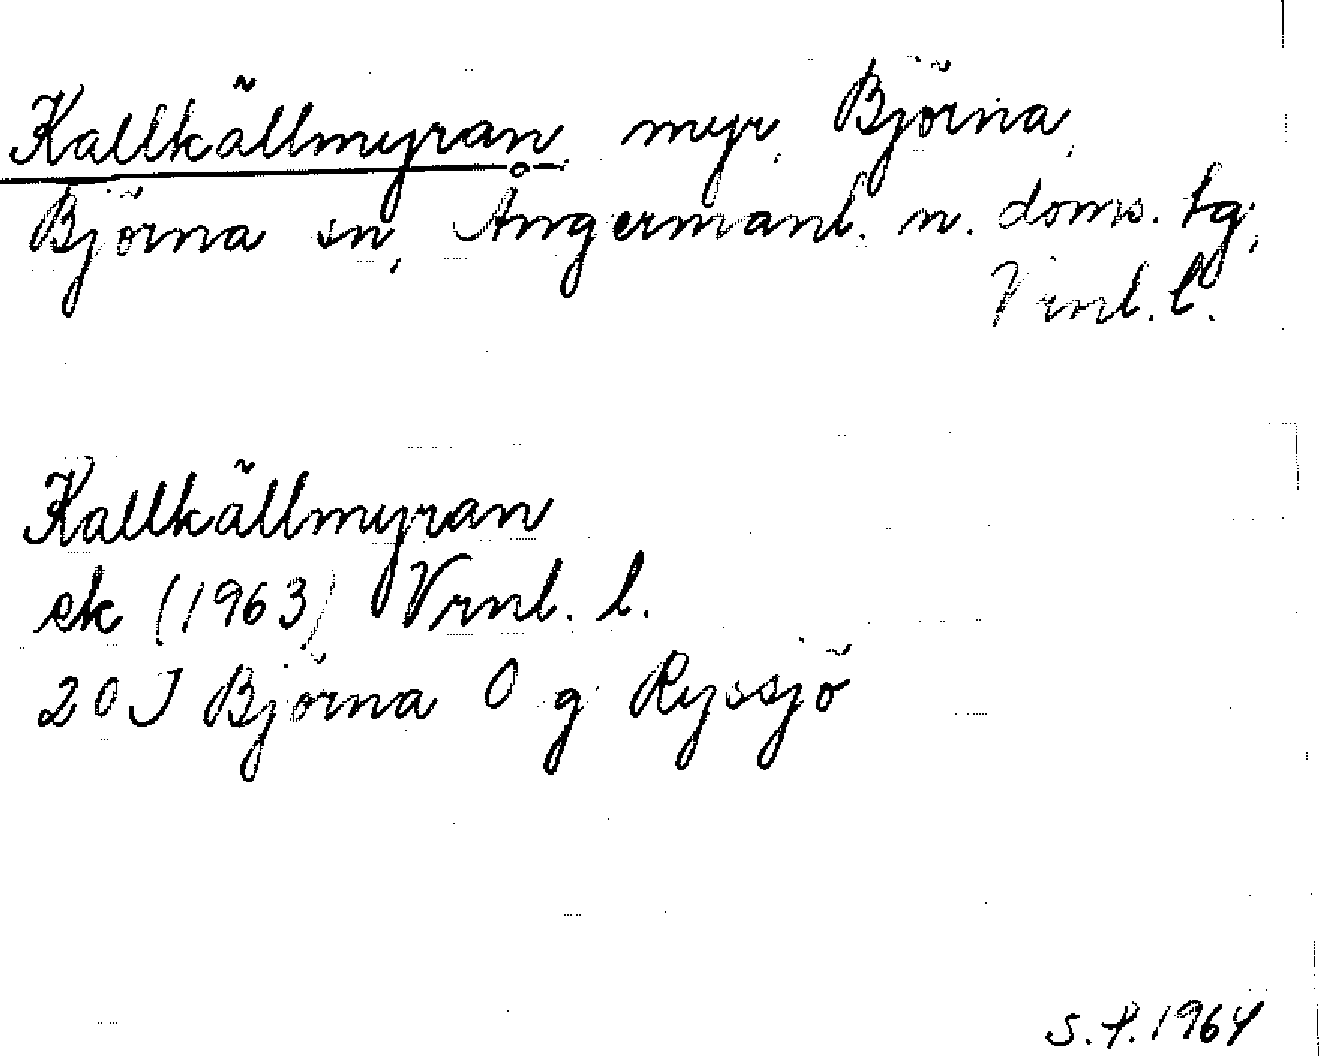 Kallkällmyran, myr, Björna,
Björna sn, Ångermanl. n. doms. tg,
Vrnl. l.
Kallkällmyran
ek (1963) Vrnl. l.
20 J Björna O g Ryssjö
S.P. 1964